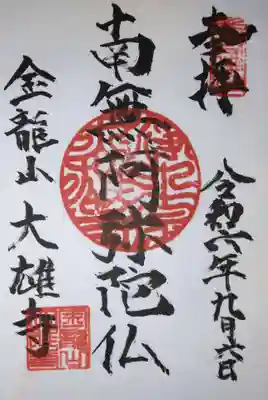 奉拝
令和六年九月六日
南無阿弥陀仏
金龍山 大雄寺